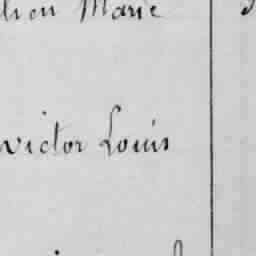 Marie
victor Louis